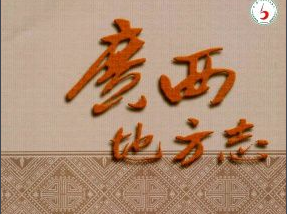 廣西
地方志